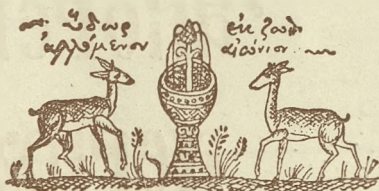 ὕδωρ
ἁλλόμενον
εἰς ζωὴν
αἰώνιον